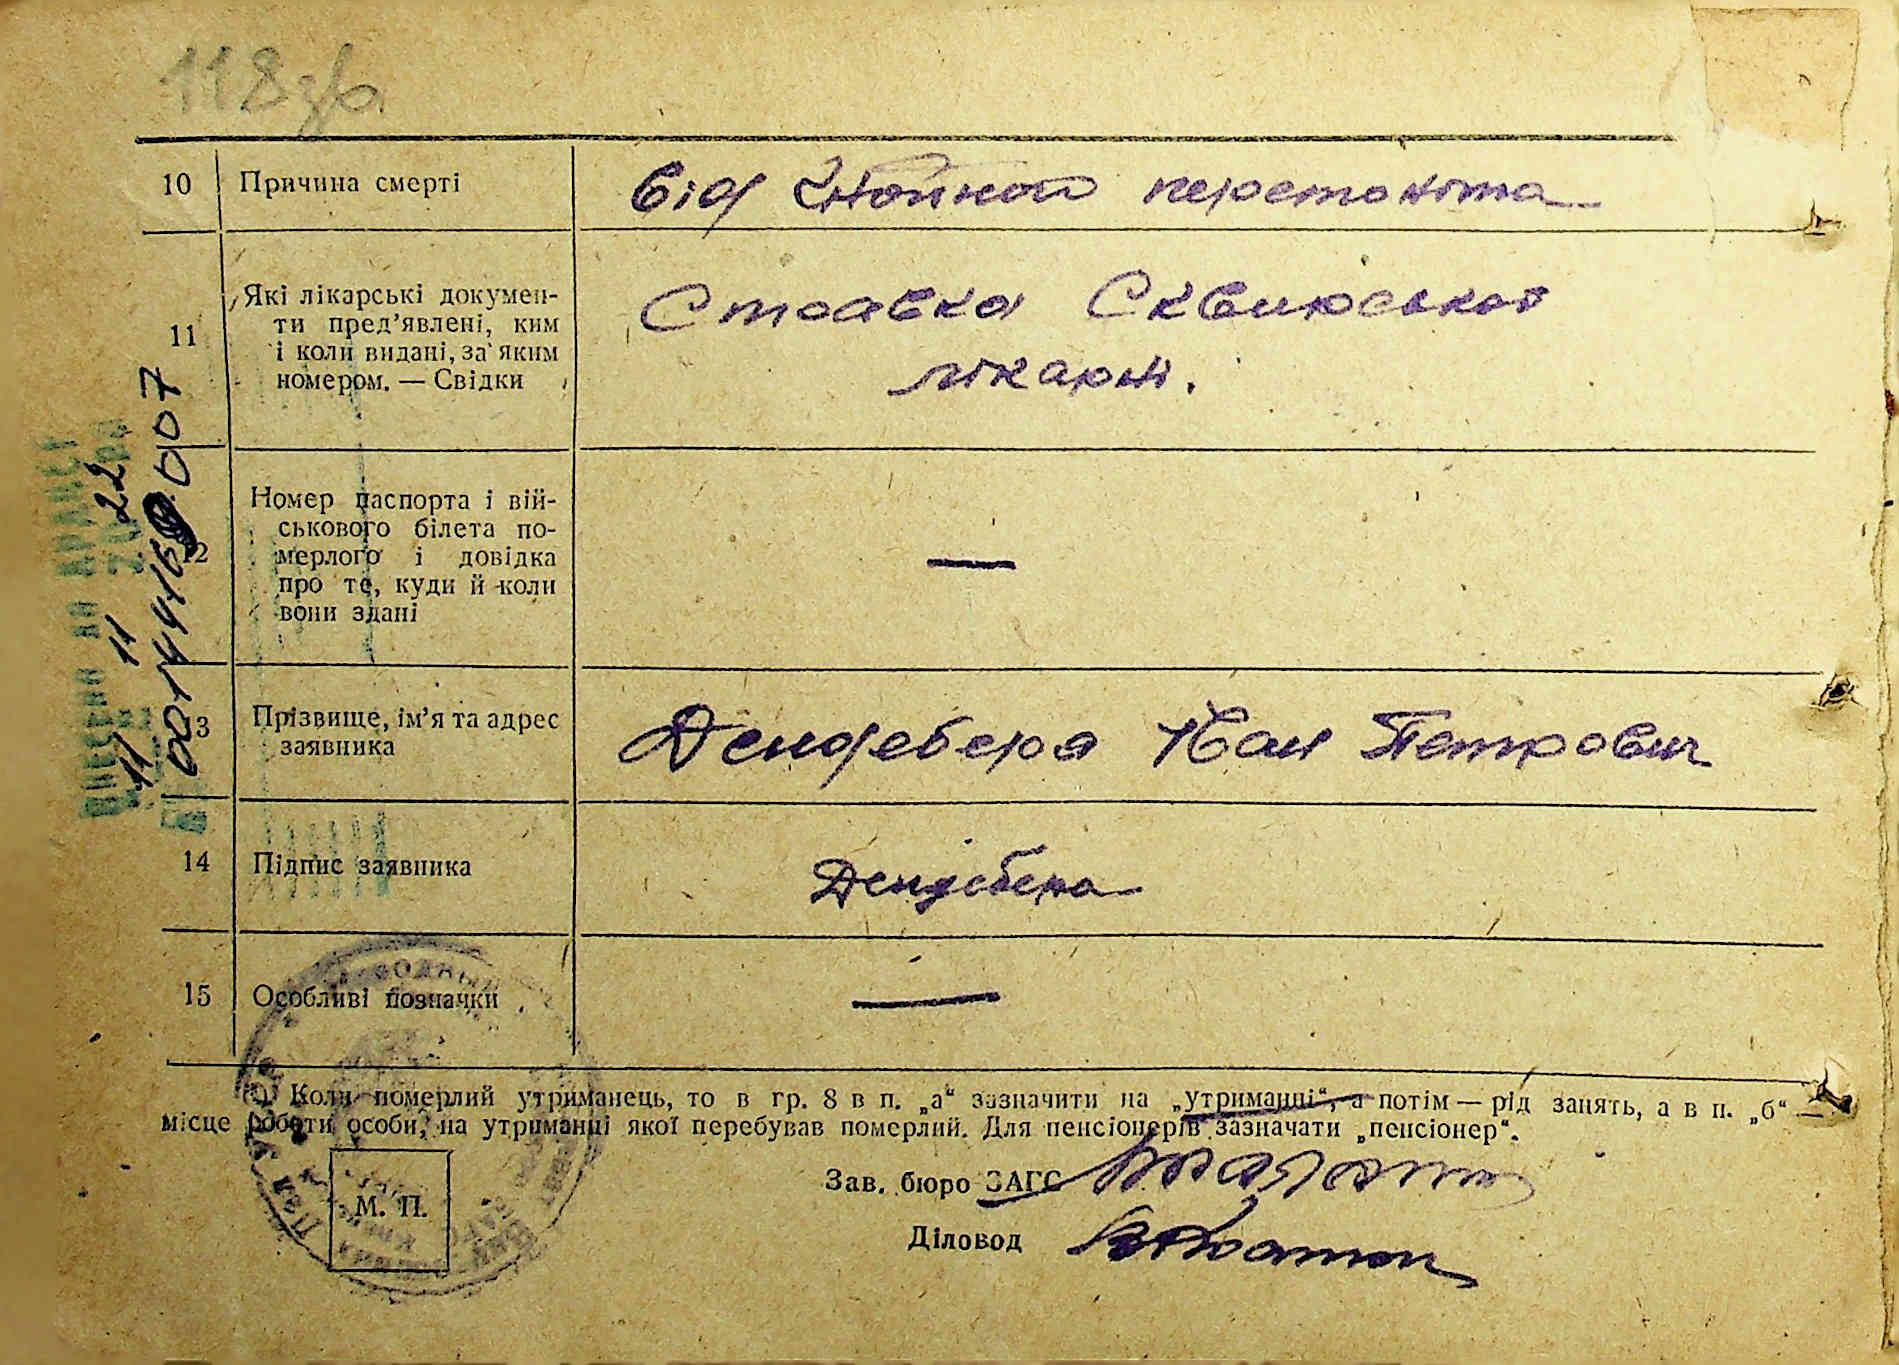 118зв.
10 Причина смерті Від гнойного перетоніта
11 Які лікарські докумен-
ти пред’явлені, ким
і коли видані, за яким
номером. — Свідки
Справка Сквирської
лікарні.
Номер паспорта і вій-
ськового білета по-
мерлого і довідка
про те, куди й коли
вони здані
—
Прізвище, ім’я та адрес
заявника
Дендебера Іван Петрович
14 Підпис заявника Дендебера
15 Особливі позначки —
1) Коли померлий утриманець, то в гр. 8 в п. „а“ зазначити на „утриманці“, а потім — рід занять, а в п. „б“ —
місце роботи особи, на утриманні якої перебував померлий. Для пенсіонерів зазначати „пенсіонер“.
Зав. бюро ЗАГС
Діловод
М. П.
11 11 22